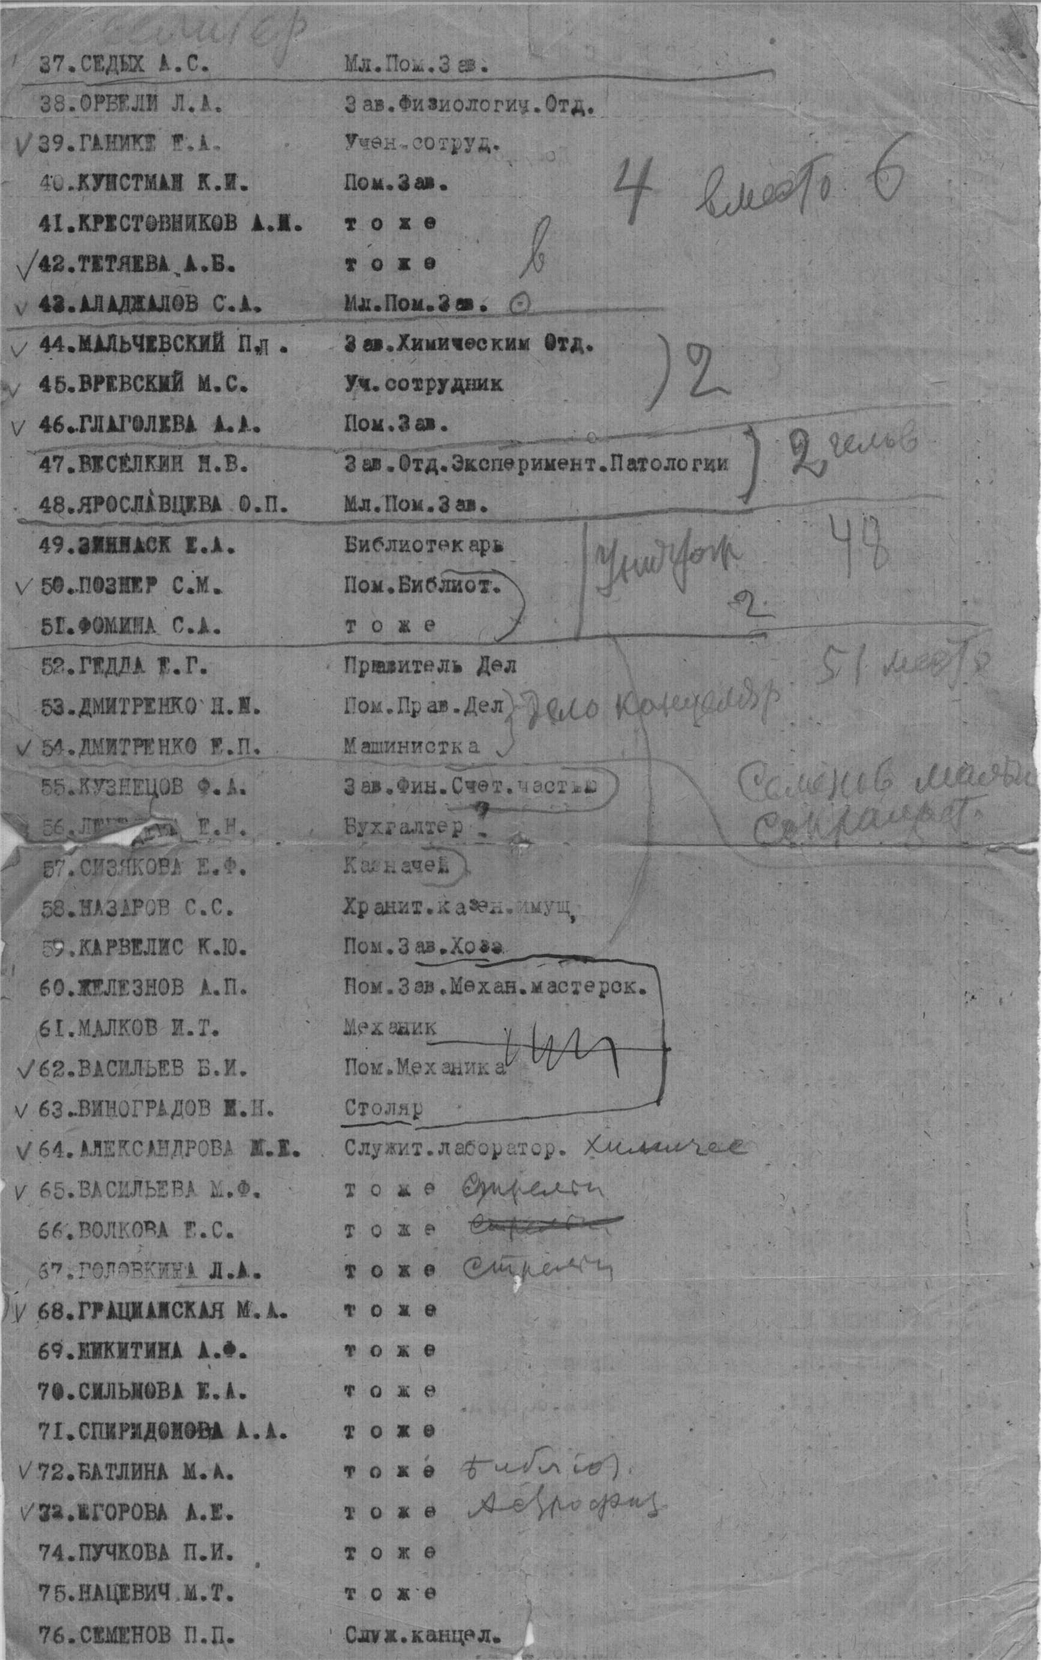 37.СЕДЫХ А.С. Мл.Пом.Зав.
38.ОРБЕЛИ Л.А. Зав.Физиологич.Отд.
39.ГАНИКЕ Е.А. Учен.сотруд.
40.КУНСТМАН К.И. Пом.Зав.
4 вместо 6
41.КРЕСТОВНИКОВ А.Н. тоже
42.ТЕТЯЕВА А.Б. тоже
в
43.АЛАДЖАЛОВ С.А. Мл.Пом.Зав.
44.МАЛЬЧЕВСКИЙ П.Л. Зав.Химическим Отд.
2
45.ВРЕВСКИЙ М.С. Уч.сотрудник
46.ГЛАГОЛЕВА А.А. Пом.Зав.
47.ВЕСЕЛКИН Н.В. Зав.Отд.Эксперимент.Патологии
2
48.ЯРОСЛАВЦЕВА О.П. Мл.Пом.Зав.
49.ЗИННАСК Е.А. Библиотекарь
48
50.ПОЗНЕР С.М. Пом.Библиот.
2
51.ФОМИНА С.А. тоже
52.ГЕДДА Е.Г. Правитель Дел
51 место
53.ДМИТРЕНКО Н.И. Пом.Прав.Дел
Дело канцеляр
54.ДМИТРЕНКО Е.П. Машинистка
55.КУЗНЕЦОВ Ф.А. Зав.Фин.Счет.частью
Семенов
сократ.
56. Е.Н. Бухгалтер
57.СИЗЯКОВА Е.Ф. Казначей
58.НАЗАРОВ С.С. Хранит.казен.имущ,
59.КАРВЕЛИС К.Ю. Пом.Зав.Хозэ
60.ЖЕЛЕЗНОВ А.П. Пом.Зав.Механ.мастерск.
61.МАЛКОВ И.Т. Механик
62.ВАСИЛЬЕВ Б.И. Пом.Механика
63.ВИНОГРАДОВ И.Н. Столяр
64.АЛЕКСАНДРОВА М.Е. Служит.лаборатор. химичес
65.ВАСИЛЬЕВА М.Ф. тоже
66.ВОЛКОВА Е.С. тоже
67.ГОЛОВКИНА Л.А. тоже
68.ГРАЦИАНСКАЯ М.А. тоже
69.НИКИТИНА А.Ф. тоже
70.СИЛЬНОВА Е.А. тоже
71.СПИРИДОНОВА А.А. тоже
72.БАТЛИНА М.А. тоже библіот.
73.ЕГОРОВА А.Е. тоже Астрофиз
74.ПУЧКОВА П.И. тоже
75.НАЦЕВИЧ М.Т. тоже
76.СЕМЕНОВ П.П. Служ.канцел.